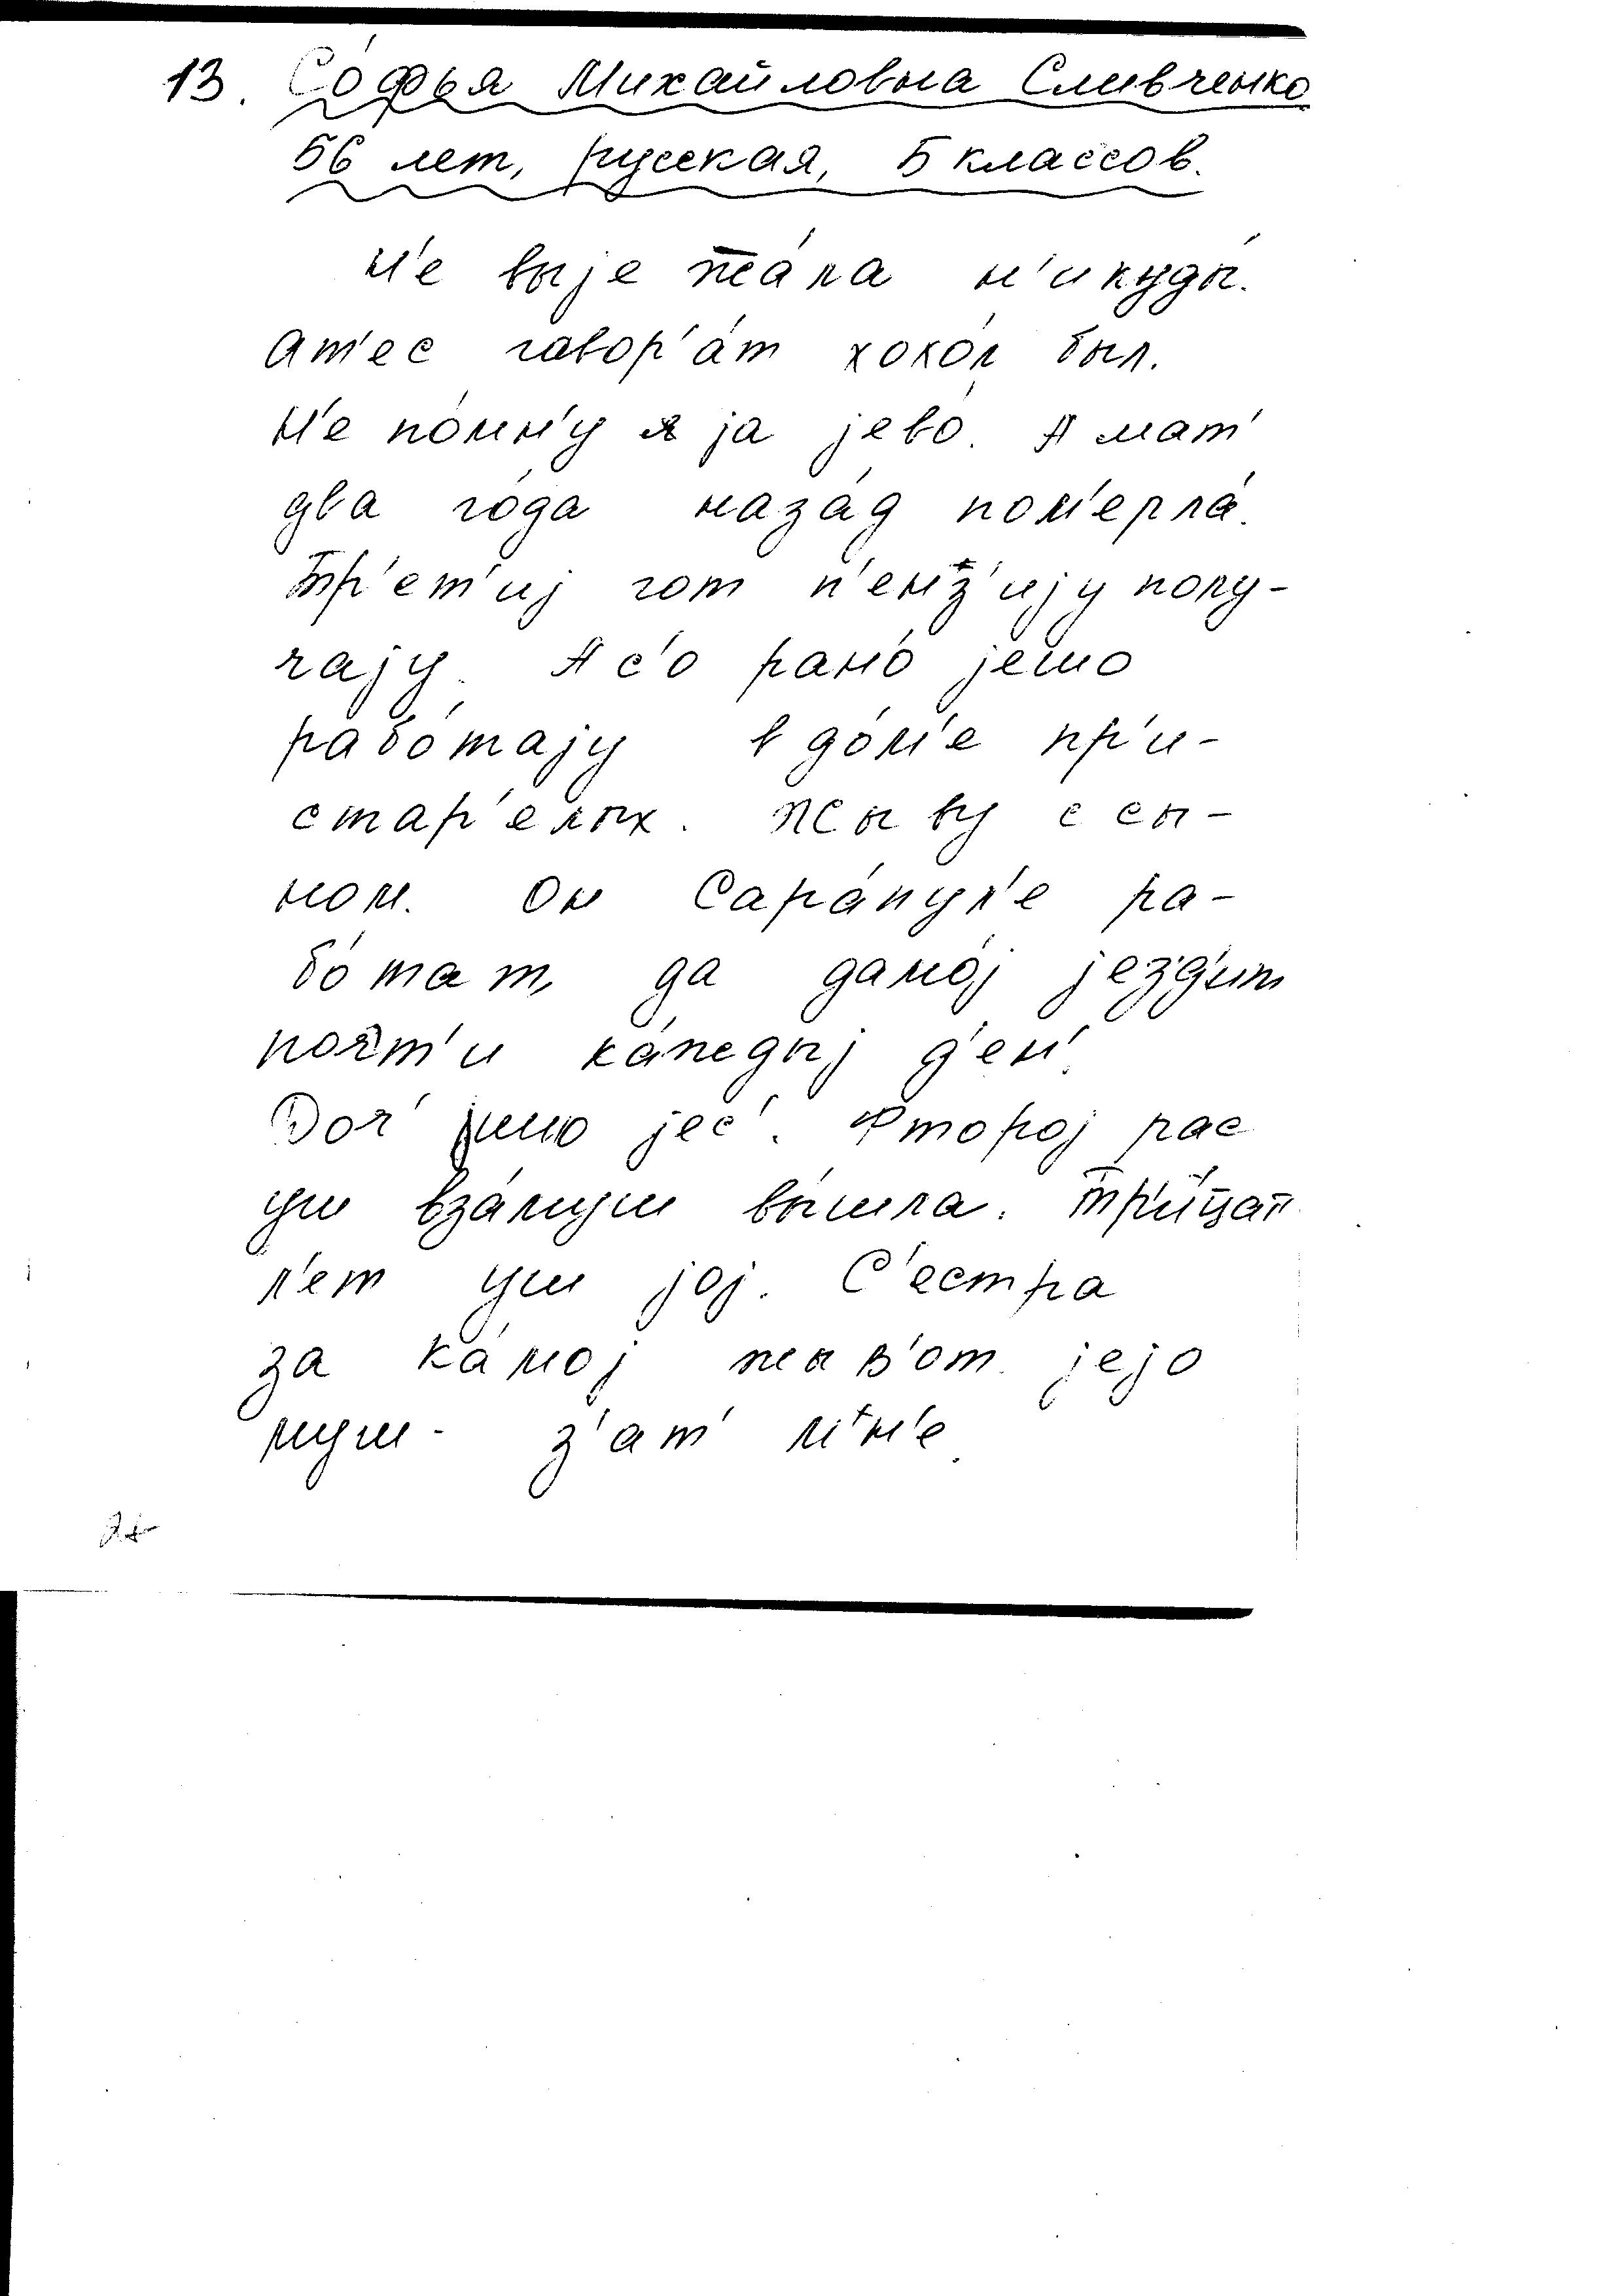 13. Со́фья Михайловна Сливченко
56 лет, русская, 5 классов.
н'е выjежа́ла н'икуды́.
ат'ес говор'а́т хохо́л был.
н'е по́мн'у ja jево́. А мат'
два го́да наза́д пом'ерла́.
Тр'ет'иj гот п'енз'иjу полу-
чаjу. А с'о равно́ jешо
рабо́таjу в до́м'е пр'и-
стар'елых. Жыву с сы-
ном. Он Сара́пул'е ра-
бо́тат, да дамо́j jез'д'ит
почт'и ка́ждыj д'ен'.
Доч' jешо jес'. Фтороj рас
уш вза́муш вы́шла. Тр'и́цат'
л'ет уш joj. С'естра
за ка́моj жыв'от. jejo
муш - з'ат' мн'е.